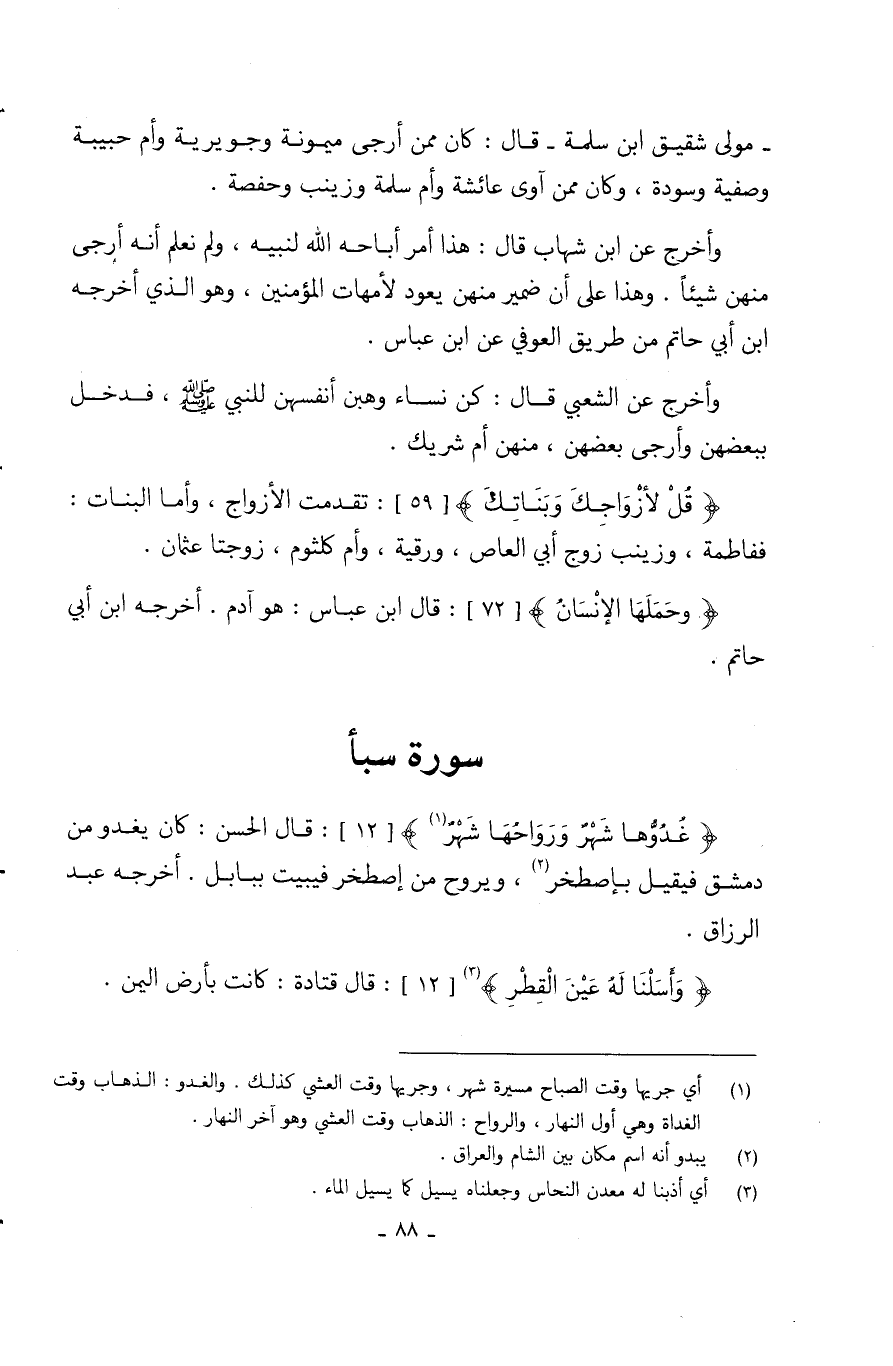 ـ مولى شقيق ابن سلمة ـ قال : كان ممن أرجى ميمونة وجويرية وأم حبيبة
وصفية وسودة ، وكان ممن آوى عائشة وأم سلمة وزينب وحفصة .
وأخرج عن ابن شهاب قال : هذا أمر أباحه الله لنبيه ، ولم نعلم أنه أرجى
منهن شيئاً . وهذا على أن ضمير منهن يعود لأمهات المؤمنين ، وهو الذي أخرجه
ابن أبي حاتم من طريق العوفي عن ابن عباس .
وأخرج عن الشعبي قال : كن نساء وهبن أنفسهن للنبي ﷺ ، فدخل
ببعضهن وأرجى بعضهن ، منهن أم شريك .
﴿ قُلْ لأزْوَاجِكَ وَبَنَاتِكَ ﴾ [ ٥٩ ] : تقدمت الأزواج ، وأما البنات :
ففاطمة ، وزينب زوج أبي العاص ، ورقية ، وأم كلثوم ، زوجتا عثمان .
﴿ وحَمَلَهَا الإنْسَانُ ﴾ [ ٧٢ ] : قال ابن عباس : هو آدم . أخرجه ابن أبي
حاتم .
سورة سبأ
﴿ غُدُوُّها شَهْرٌ وَرَوَاحُهَا شَهْرٌ(١) ﴾ [ ١٢ ] : قال الحسن : كان يغدو من
دمشق فيقيل بإصطخر(٢) ، ويروح من إصطخر فيبيت ببابل . أخرجه عبد
الرزاق .
﴿ وَأَسَلْنَا لَهُ عَيْنَ الْقِطْرِ ﴾(٣) [ ١٢ ] : قال قتادة : كانت بأرض اليمن .
(١) أي جريها وقت الصباح مسيرة شهر ، وجريها وقت العشي كذلك . والغدو : الذهاب وقت
الغداة وهي أول النهار ، والرواح : الذهاب وقت العشي وهو آخر النهار .
(٢) يبدو أنه اسم مكان بين الشام والعراق .
(٣) أي أذبنا له معدن النحاس وجعلناه يسيل كما يسيل الماء .
ـ ٨٨ ـ